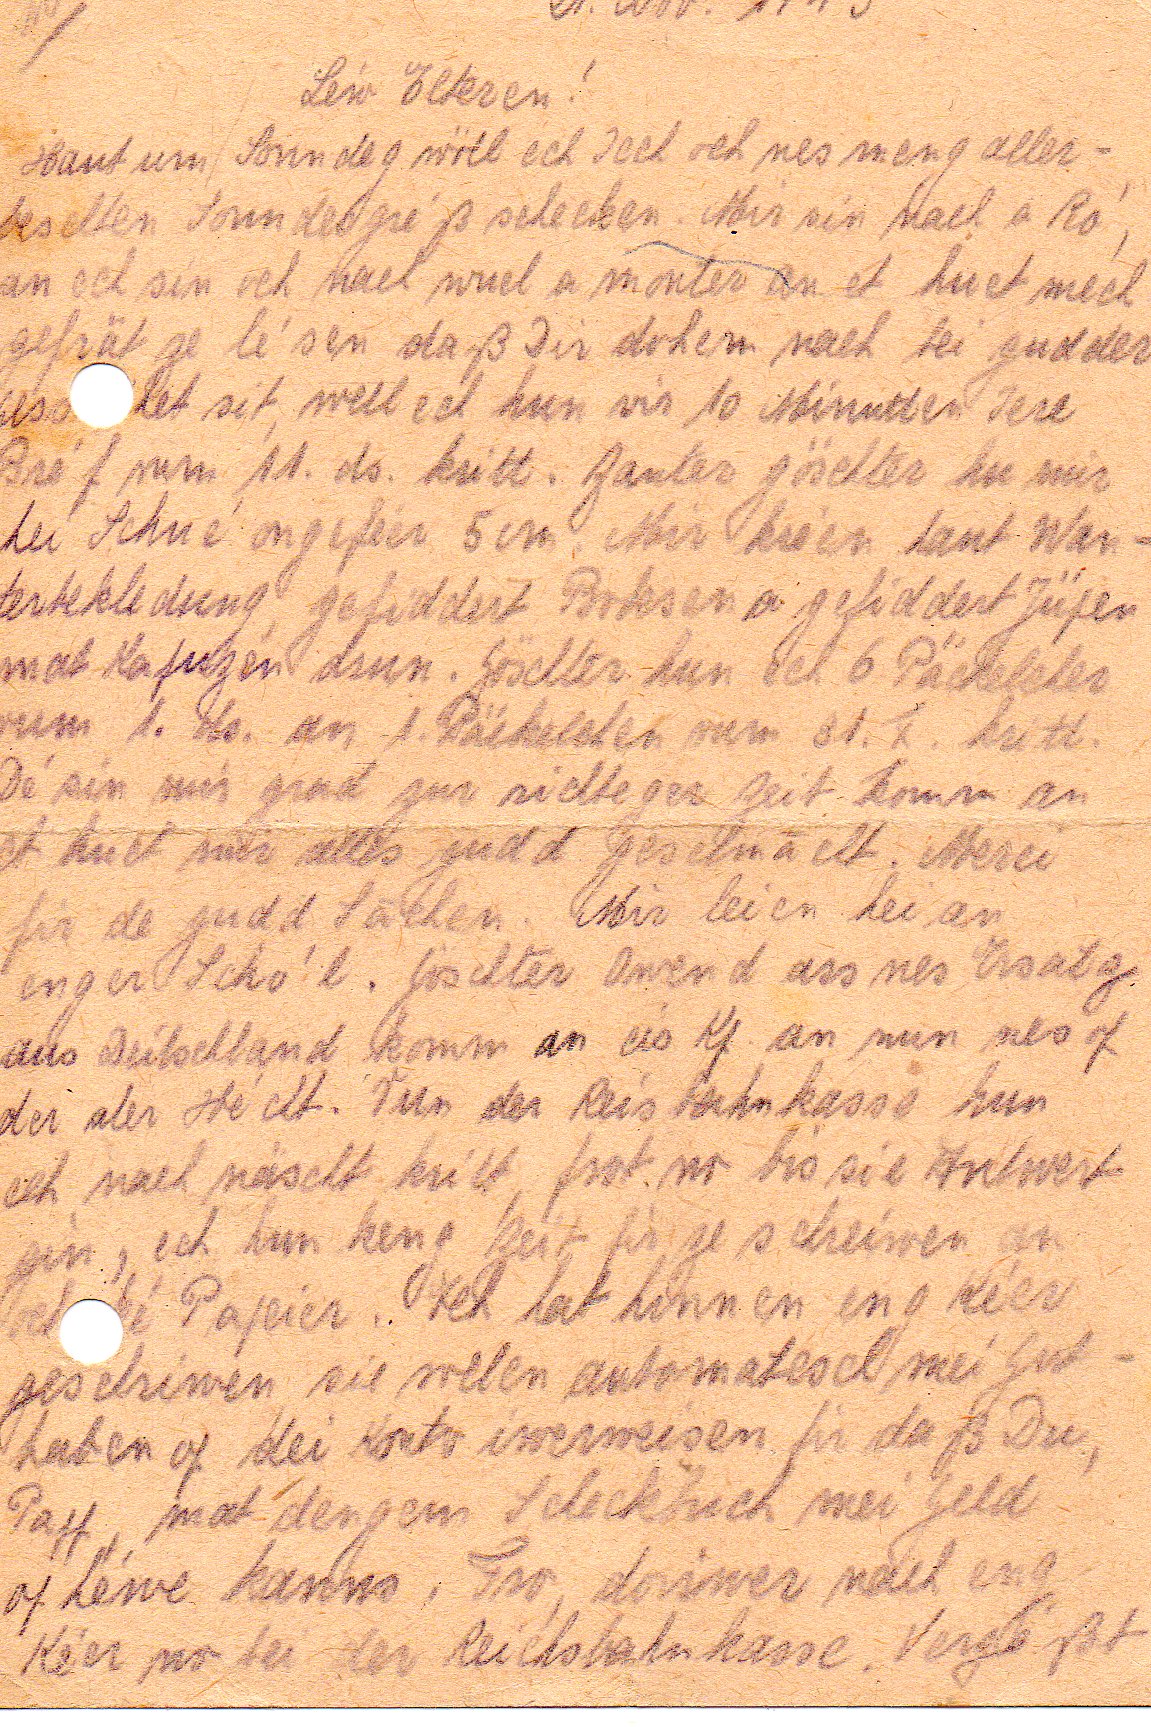 21. Nov. 1943
Léiw Elteren!
Haut um Sonndeg wöll ech Iech och nes meng aller-
beschten Sonndesgré'ß schecken Mir sin nach a Ro',
an ech sin och nach wuel a monter an et huet mech
gefrät ze lé'sen daß Dir dohem nach bei gudder
Geso het sit, well ech hun vir 10 Minutten Iere
Bré'f vum 11. ds. kritt. Zanter göschter hu mir
hei Schné ongeféer 5 cm. Mir kréen haut Wan-
terbekledung, gefiddert Boksen a gefiddert Jüpen
mat Kapuzen drun. Göschter hun ech 6 Päckelcher
vum 1. ds. an 1. Päckelchen vum 31. X. kritt.
Dé' sin mir grad zur richteger Zeit komm an
et huet mir alles gudd geschmācht. Merci
fir de gudd Sāchen. Mir leien hei an
enger Scho'l. Göschter Owend ass nes Ersatz
aus Deitschland komm an eis Kp. an nun nes of
der aler Hé'cht. Vun der Reisbahnkasse hun
ech nach näischt kritt, frot no bis sie Antwert
gin, ech hun keng Zeit fir ze schreiwen an
och ké' Papeier. Ech hat hinnen eng Ké'er
geschriwen sie welen automatesch mei Gut-
haben of dei Konto iwerweisen fir daß Du,
Papp, mat dengem Scheckbuch mei Geld
of héwe kanns. Fro, doriwer nach eng
Ké'er no bei der Reichsbahnkasse. Vergé'ßt